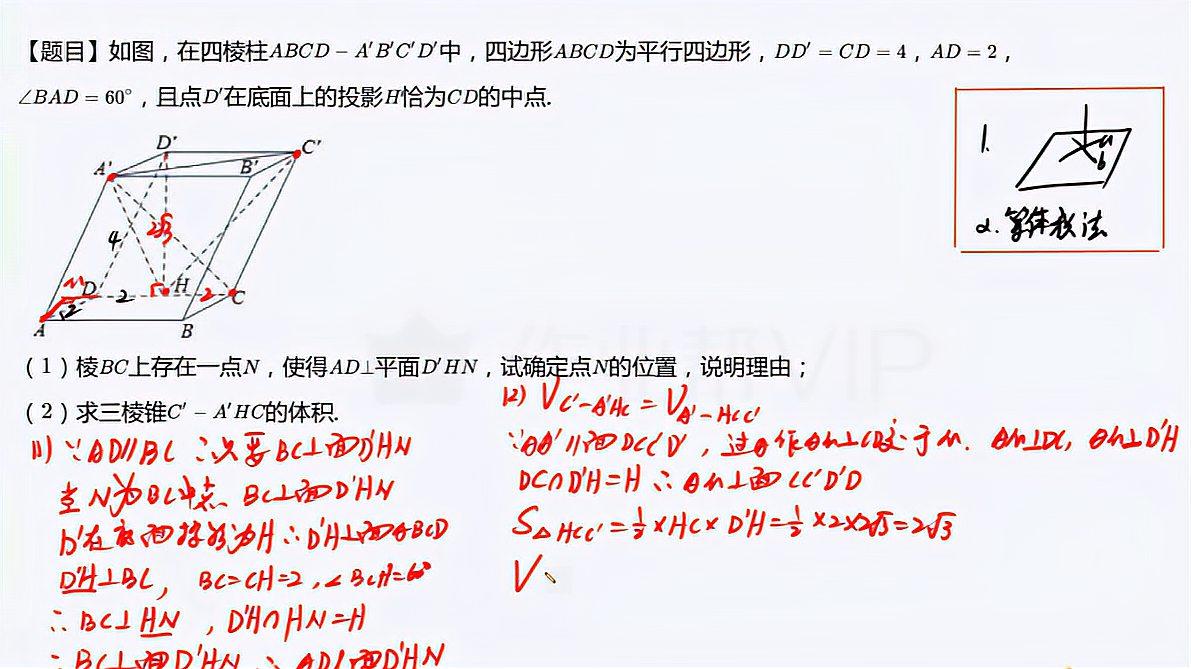 【题目】如图，在四棱柱ABCD－A′B′C′D′中，四边形ABCD为平行四边形，DD′＝CD＝4，AD＝2，
∠BAD＝60°，且点D′在底面上的投影H恰为CD的中点.
D′
C′
A′
B′
4
2√3
M
D
2
H
2
C
2
A
B
1.
a
b
2.等体积法
（1）棱BC上存在一点N，使得AD⊥平面D′HN，试确定点N的位置，说明理由；
（2）求三棱锥C′－A′HC的体积.
(1) ∵AD∥BC ∴只要BC⊥面D′HN
当N为BC中点 BC⊥面D′HN
D′在底面投影为H ∴D′H⊥面ABCD
D′H⊥BC，BC=CH=2，∠BCH=60°
∴BC⊥HN，D′H∩HN=H
∴BC⊥面D′HN ∴AD⊥面D′HN
(2) V C′-A′HC = V A′-HCC′
∵AA′∥面DCC′D′，过A作AM⊥CD交于M. AM⊥DC，AM⊥D′H
DC∩D′H=H ∴AM⊥面CC′D′D
S△HCC′=½×HC×D′H=½×2×2√3=2√3
V
作业帮VIP